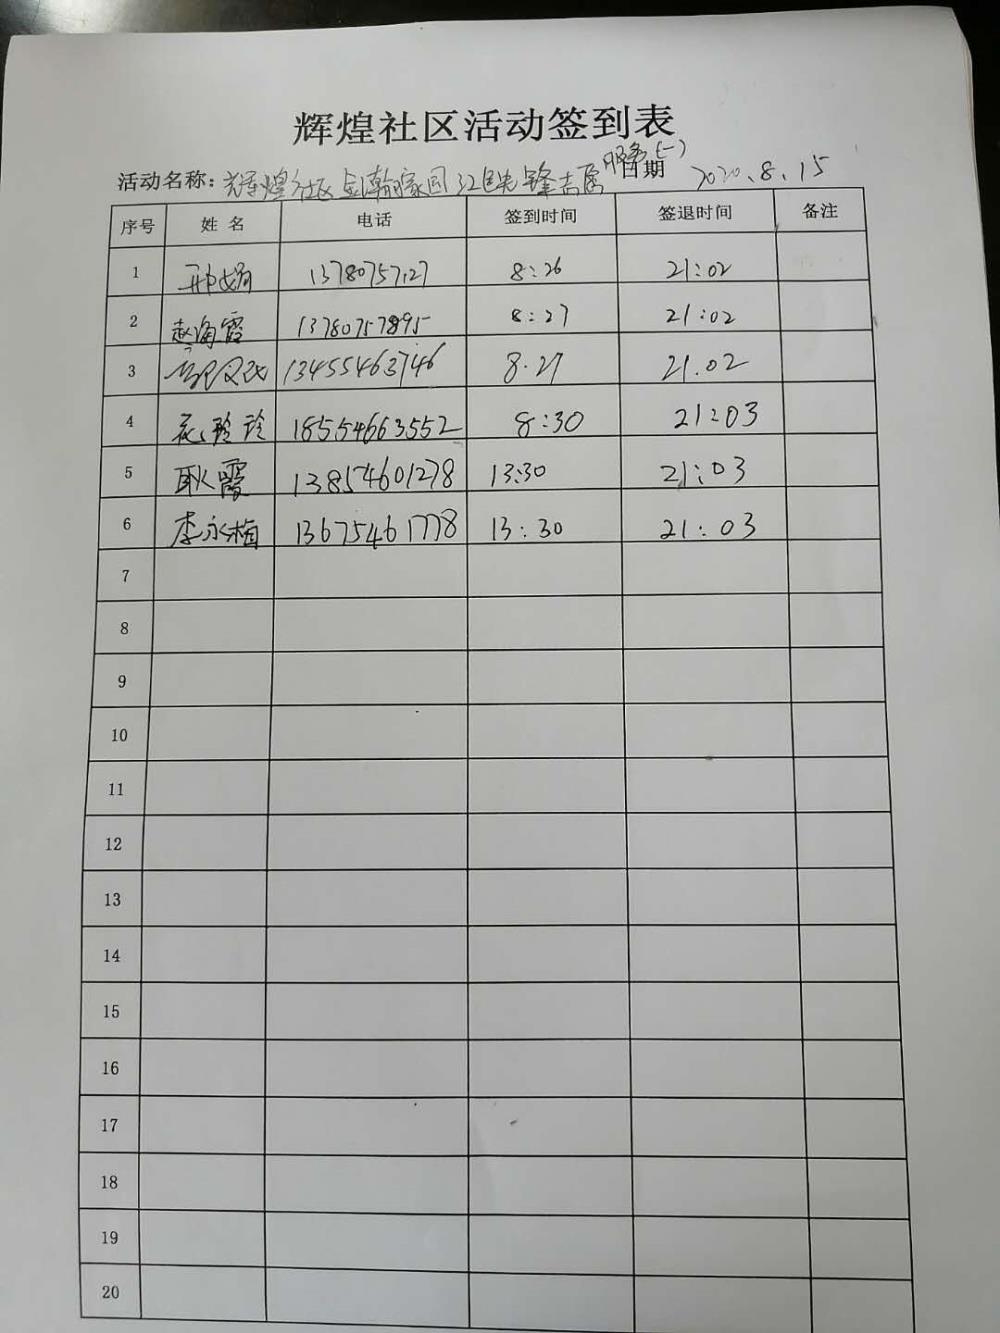 辉煌社区活动签到表
活动名称：辉煌社区金瀚家园红色先锋志愿服务(一) 日期 2020.8.15
序号 姓名 电话 签到时间 签退时间 备注
1 13780757127 8:26 21:02
2 赵海霞 13780757895 8:27 21:02
3 13455463746 8.27 21.02
4 玲玲 18554663552 8:30 21:03
5 耿霞 13854601278 13:30 21:03
6 李永梅 13675461778 13:30 21:03
7
8
9
10
11
12
13
14
15
16
17
18
19
20